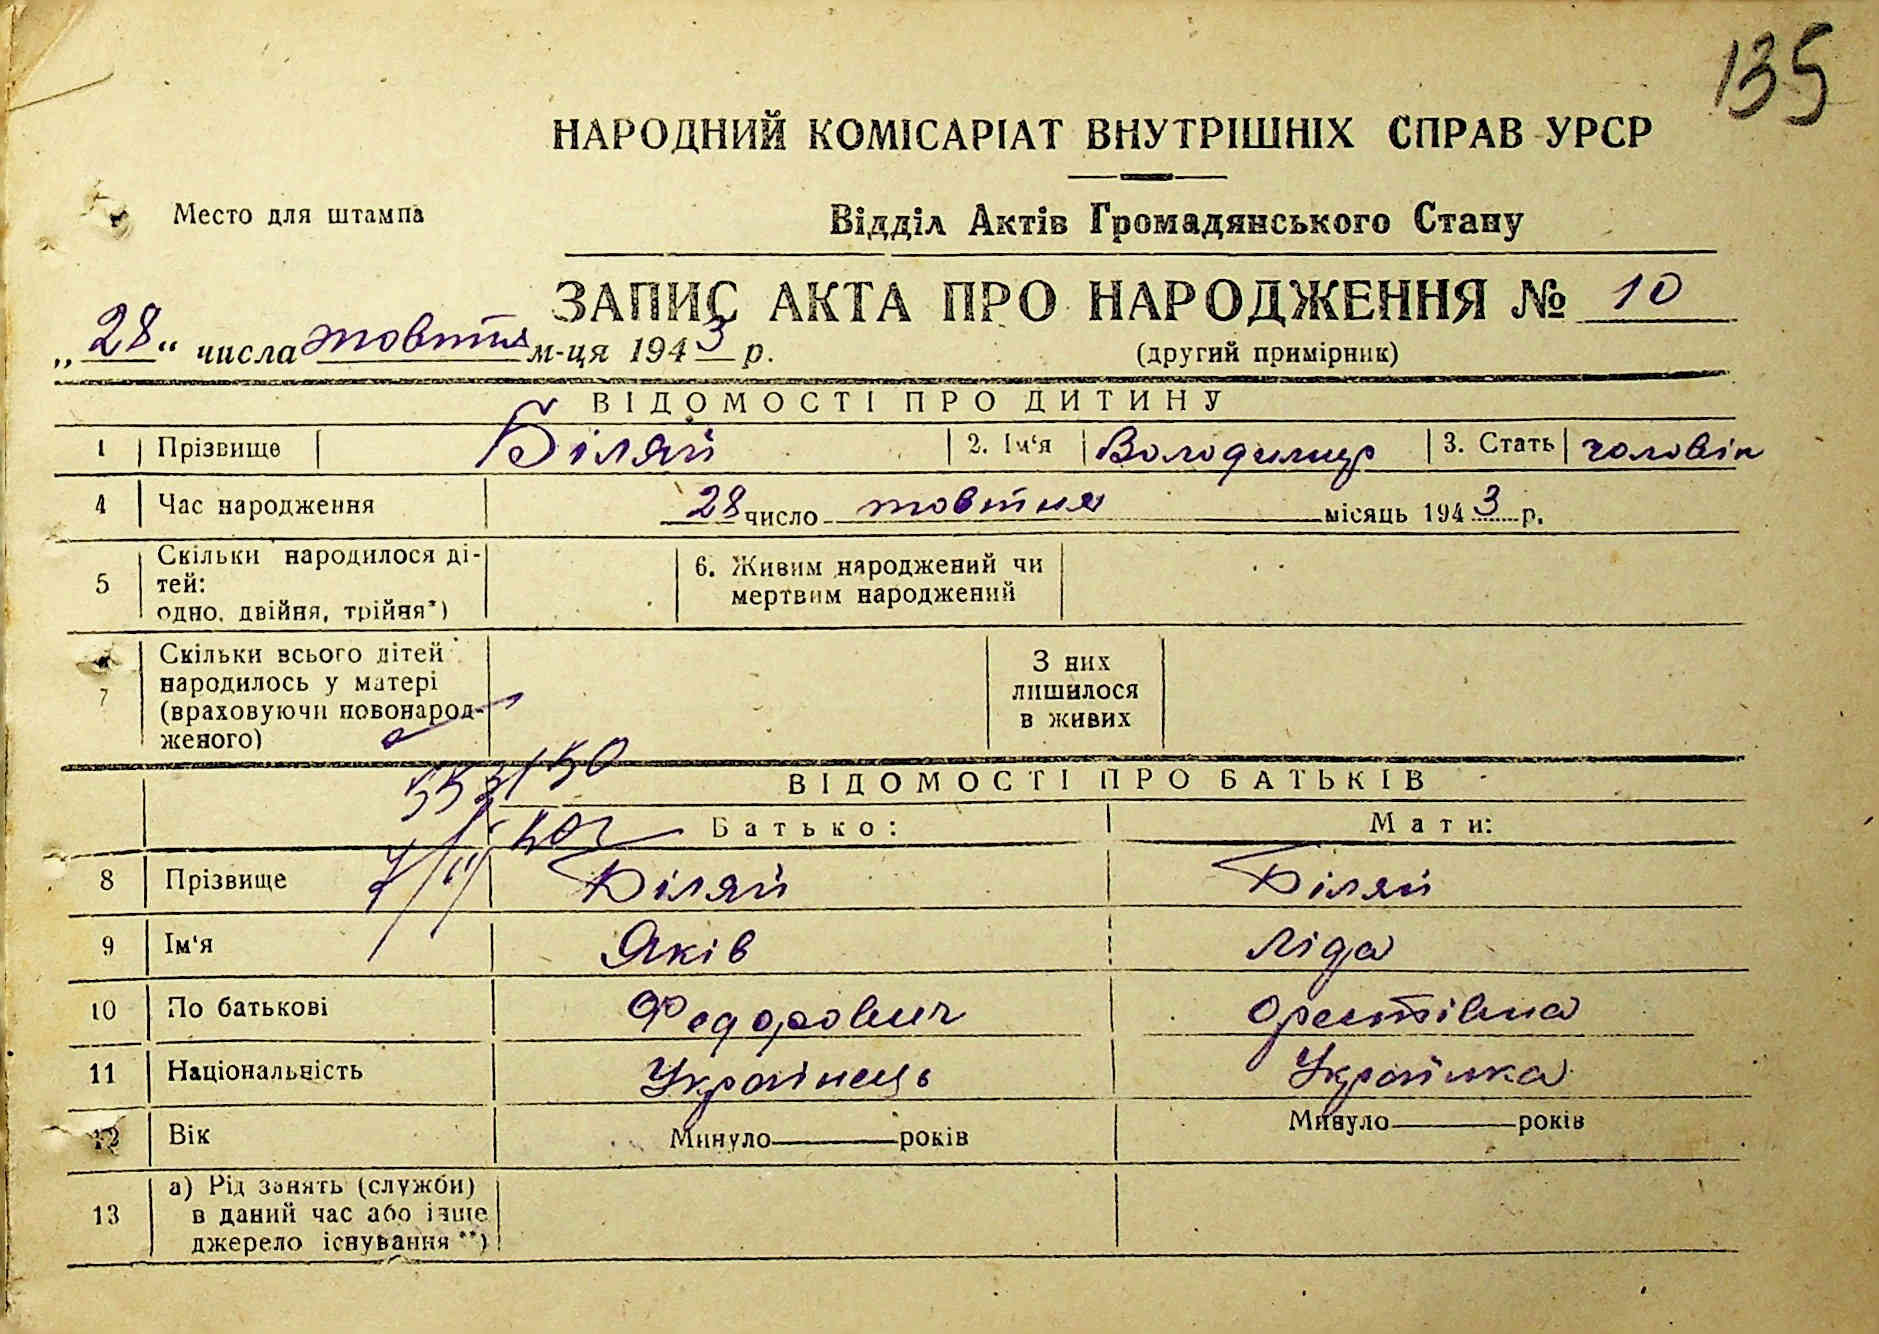 135
НАРОДНИЙ КОМІСАРІАТ ВНУТРІШНІХ СПРАВ УРСР
Место для штампа
Відділ Актів Громадянського Стану
ЗАПИС АКТА ПРО НАРОДЖЕННЯ № 10
„28“ числа жовтня м-ця 1943 р.
(другий примірник)
ВІДОМОСТІ ПРО ДИТИНУ
1 Прізвище Біляй 2. Ім‘я Володимир 3. Стать чоловік
4 Час народження 28 число жовтня місяць 1943 р.
5 Скільки народилося ді-
тей:
одно, двійня, трійня*)
6. Живим народжений чи
мертвим народжений
7 Скільки всього дітей
народилось у матері
(враховуючи новонарод-
женого)
З них
лишилося
в живих
ВІДОМОСТІ ПРО БАТЬКІВ
Батько: Мати:
8 Прізвище Біляй Біляй
9 Ім‘я Яків Ліда
10 По батькові Федорович Орестівна
11 Національність Українець Українка
12 Вік Минуло років Минуло років
13 а) Рід занять (служби)
в даний час або інше
джерело існування**)